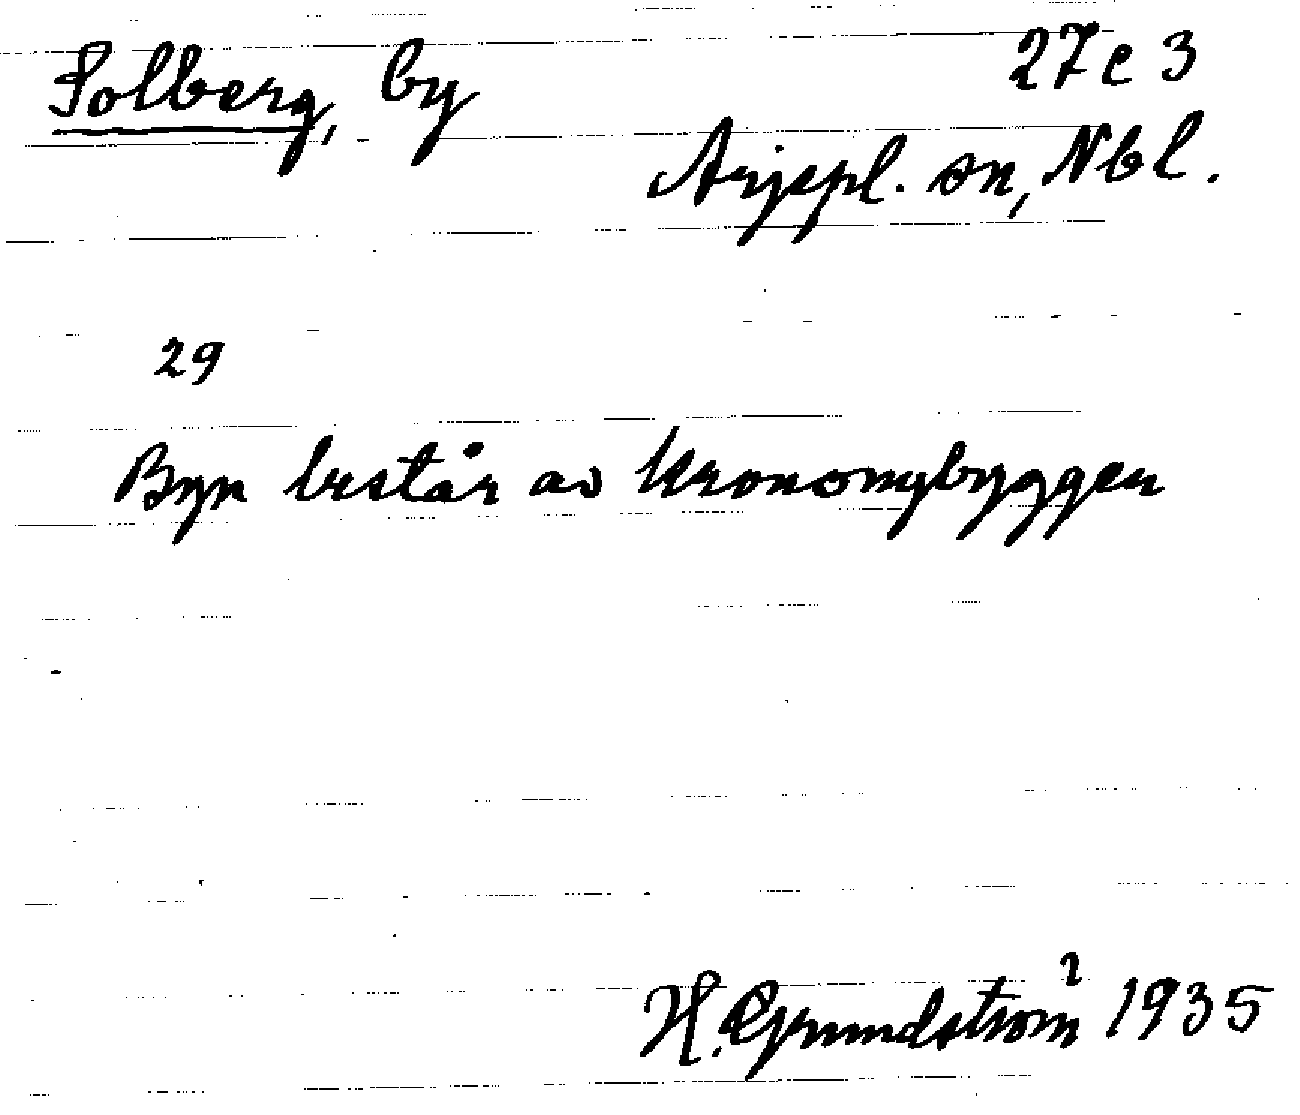 Solberg, by 27 e 3
Arjepl. sn, Nbl.
29
Byn består av kronomybyggen
H. Grundström 1935